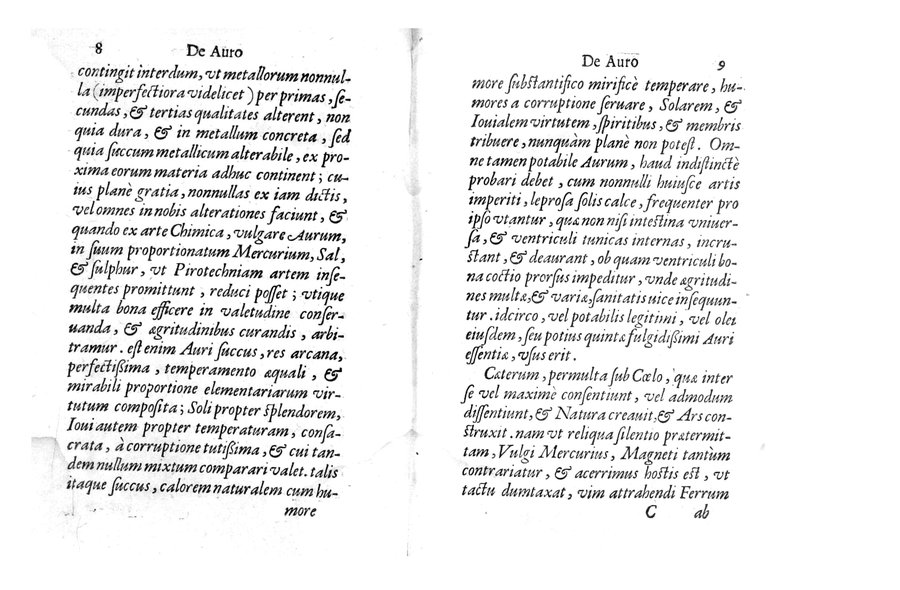 8 De Auro
contingit interdum, vt metallorum nonnul-
la (imperfectiora videlicet) per primas, ſe-
cundas, & tertias qualitates alterent, non
quia dura, & in metallum concreta, ſed
quia ſuccum metallicum alterabile, ex pro-
xima eorum materia adhuc continent; cu-
ius planè gratia, nonnullas ex iam dictis,
vel omnes in nobis alterationes faciunt, &
quando ex arte Chimica, vulgare Aurum,
in ſuum proportionatum Mercurium, Sal,
& ſulphur, vt Pirotechniam artem inſe-
quentes promittunt, reduci poſſet; vtique
multa bona efficere in valetudine conſer-
uanda, & ægritudinibus curandis, arbi-
tramur. eſt enim Auri ſuccus, res arcana,
perfectiſſima, temperamento æquali, &
mirabili proportione elementariarum vir-
tutum compoſita; Soli propter ſplendorem,
Ioui autem propter temperaturam, conſa-
crata, à corruptione tutiſſima, & cui tan-
dem nullum mixtum comparari valet. talis
itaque ſuccus, calorem naturalem cum hu-
more
De Auro 9
more ſubſtantifico mirificè temperare, hu-
mores a corruptione ſeruare, Solarem, &
Iouialem virtutem, ſpiritibus, & membris
tribuere, nunquàm planè non poteſt. Om-
ne tamen potabile Aurum, haud indiſtinctè
probari debet, cum nonnulli huiuſce artis
imperiti, leproſa ſolis calce, frequenter pro
ipſo vtantur, quæ non niſi inteſtina vniuer-
ſa, & ventriculi tunicas internas, incru-
ſtant, & deaurant, ob quam ventriculi bo-
na coctio prorſus impeditur, vnde ægritudi-
nes multæ, & variæ, ſanitatis uice inſequun-
tur. idcirco, vel potabilis legitimi, vel olei
eiuſdem, ſeu potius quintæ fulgidiſſimi Auri
eſſentiæ, vſus erit.
Cæterum, permulta ſub Cœlo, quæ inter
ſe vel maximè conſentiunt, vel admodum
diſſentiunt, & Natura creauit, & Ars con-
ſtruxit. nam vt reliqua ſilentio prætermit-
tam, Vulgi Mercurius, Magneti tantum
contrariatur, & acerrimus hoſtis eſt, vt
tactu dumtaxat, vim attrahendi Ferrum
C ab